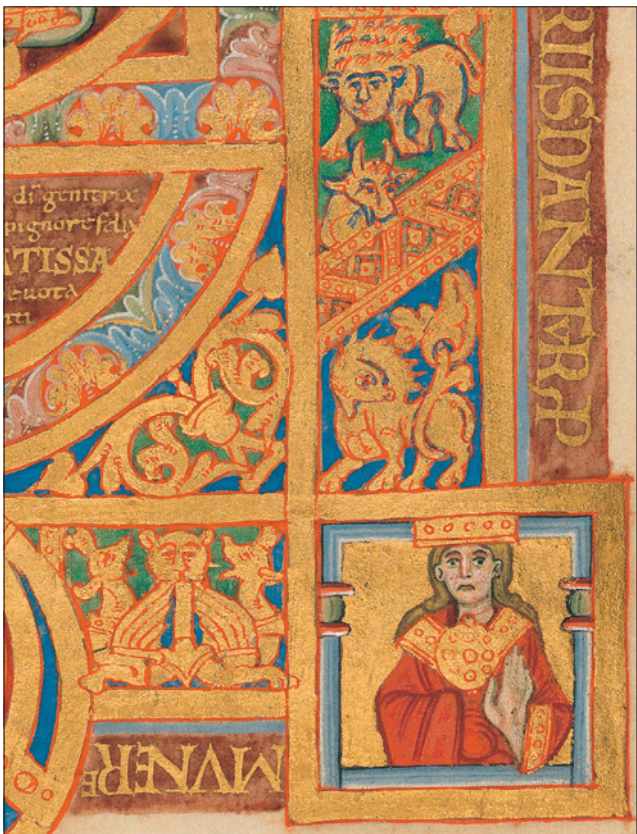 dī genitrix
pignore felix
ATISSA
euota
RIISDANTERP
MVNERE